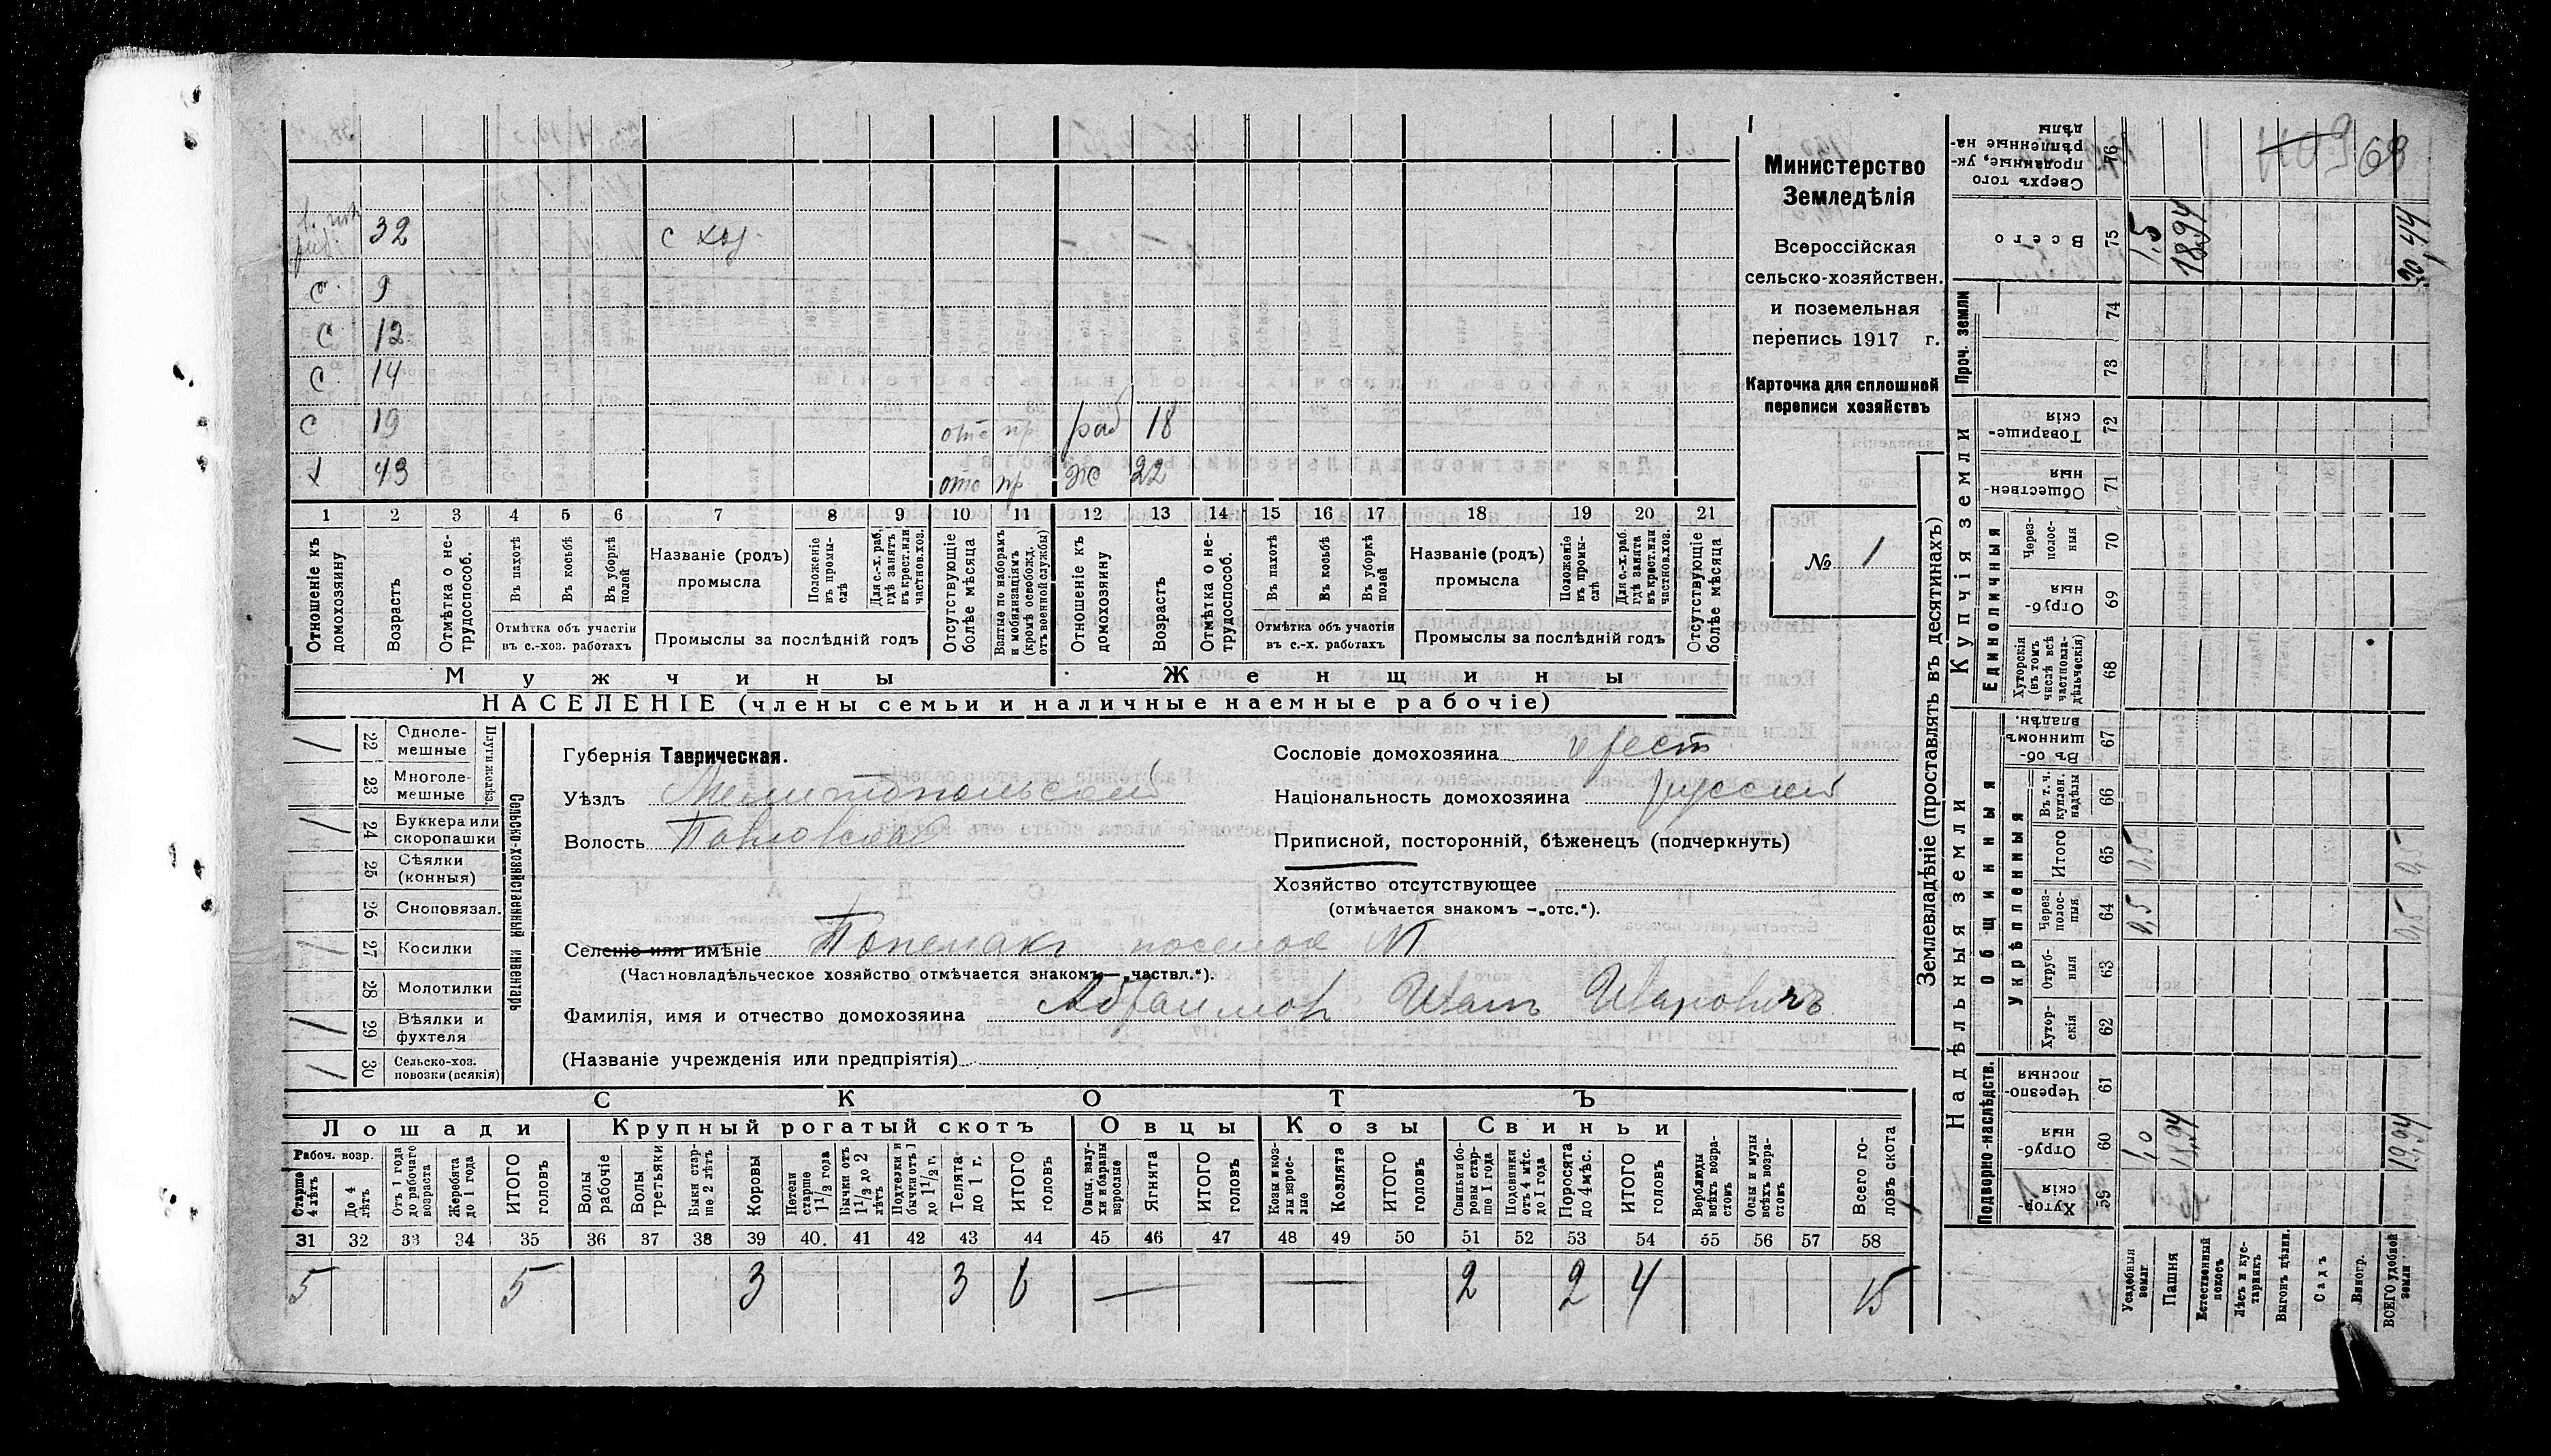 32 с хоз.
С 9
С 12
С 14
С 19 отс пр раб 18
43 отс пр Ж 22
1 2 3 4 5 6 7 8 9 10 11 12 13 14 15 16 17 18 19 20 21
Отношеніе къ домохозяину
Возрастъ
Отмѣтка о нетрудоспособ.
Въ пахотѣ
Въ косьбѣ
Въ уборкѣ полей
Отмѣтка объ участіи въ с.-хоз. работахъ
Названіе (родъ) промысла
Положеніе въ промыслѣ
Для с.-х. раб. гдѣ занятъ въ крест. или частнов. хоз.
Промыслы за послѣдній годъ
Отсутствующіе болѣе мѣсяца
Взятые по наборамъ и мобилизаціямъ (кромѣ освобожд. отъ военной службы)
Отношеніе къ домохозяину
Возрастъ
Отмѣтка о нетрудоспособ.
Въ пахотѣ
Въ косьбѣ
Въ уборкѣ полей
Отмѣтка объ участіи въ с.-х. работахъ
Названіе (родъ) промысла
Положеніе въ промыслѣ
Для с.-х. раб. гдѣ занята въ крест. или частнов. хоз.
Промыслы за послѣдній годъ
Отсутствующіе болѣе мѣсяца
Мужчины Женщины
НАСЕЛЕНІЕ (члены семьи и наличные наемные рабочіе)
Министерство
Земледѣлія
Всероссійская
сельско-хозяйствен.
и поземельная
перепись 1917 г.
Карточка для сплошной
переписи хозяйствъ
№ 1
Плуги желѣз.
22 Однолемешные
23 Многолемешные
24 Буккера или скоропашки
25 Сѣялки (конныя)
26 Сноповязал.
27 Косилки
28 Молотилки
29 Вѣялки и фухтеля
30 Сельско-хоз. повозки (всякія)
Сельско-хозяйственный инвентарь
Губернія Таврическая.
Уѣздъ Мелитопольский
Волость Павловская
Сословіе домохозяина крест
Національность домохозяина русский
Приписной, посторонній, бѣженецъ (подчеркнуть)
Хозяйство отсутствующее
(отмѣчается знакомъ —„отс.“).
Селеніе или имѣніе
(Частновладѣльческое хозяйство отмѣчается знакомъ—„частвл.“).
Фамилія, имя и отчество домохозяина Абраимов Иван Ивановичъ
(Названіе учрежденія или предпріятія)
СКОТЪ
Лошади Крупный рогатый скотъ Овцы Козы Свиньи
Рабоч. возр.
Старше 4 лѣтъ
До 4 лѣтъ
Отъ 1 года до рабочаго возраста
Жеребята до 1 года
ИТОГО головъ
Волы рабочіе
Волы третьяки
Быки старше 2 лѣтъ
Коровы
Нетели старше 1½ года
Бычки отъ 1½ до 2 лѣтъ
Подтелки и бычки отъ 1 до 1½ г.
Телята до 1 г.
ИТОГО головъ
Овцы, валухи и бараны взрослые
Ягнята
ИТОГО головъ
Козы и козлы взрослые
Козлята
ИТОГО головъ
Свиньи и боровы старше 1 года
Подсвинки отъ 4 мѣс. до 1 года
Поросята до 4 мѣс.
ИТОГО головъ
Верблюды всѣхъ возрастовъ
Ослы и мулы всѣхъ возрастовъ
Всего головъ скота
31 32 33 34 35 36 37 38 39 40. 41 42 43 44 45 46 47 48 49 50 51 52 53 54 55 56 57 58
5 5 3 3 6 — — 2 2 4 15
Землевладѣніе (проставлять въ десятинахъ)
Надѣльныя земли
Купчія земли
Проч. земли
Подворно-наслѣдств.
Общинныя
Укрѣпленныя
Единоличныя
Хуторскія 59
Отрубныя 60 1,0 18,94 19,94
Черезполосныя 61
Хуторскія 62
Отрубныя 63
Черезполосныя 64 0,5 0,5
Итого 65 0,5 0,5
Въ т. ч. куплен. надѣлы 66
Въ общинномъ владѣн. 67
Хуторскія (въ томъ числѣ всѣ частновладѣльческія) 68
Отрубныя 69
Черезполосныя 70
Общественныя 71
Товарищескія 72
73
74
Всего 75 1,5 18,94 20,44
Сверхъ того проданные, укрѣпленные надѣлы 76
Усадебныя земл.
Пашня
Естественный покосъ
Лѣсъ и кустарникъ
Выгонъ цѣлин.
Садъ
Виногр.
ВСЕГО удобной земли
69